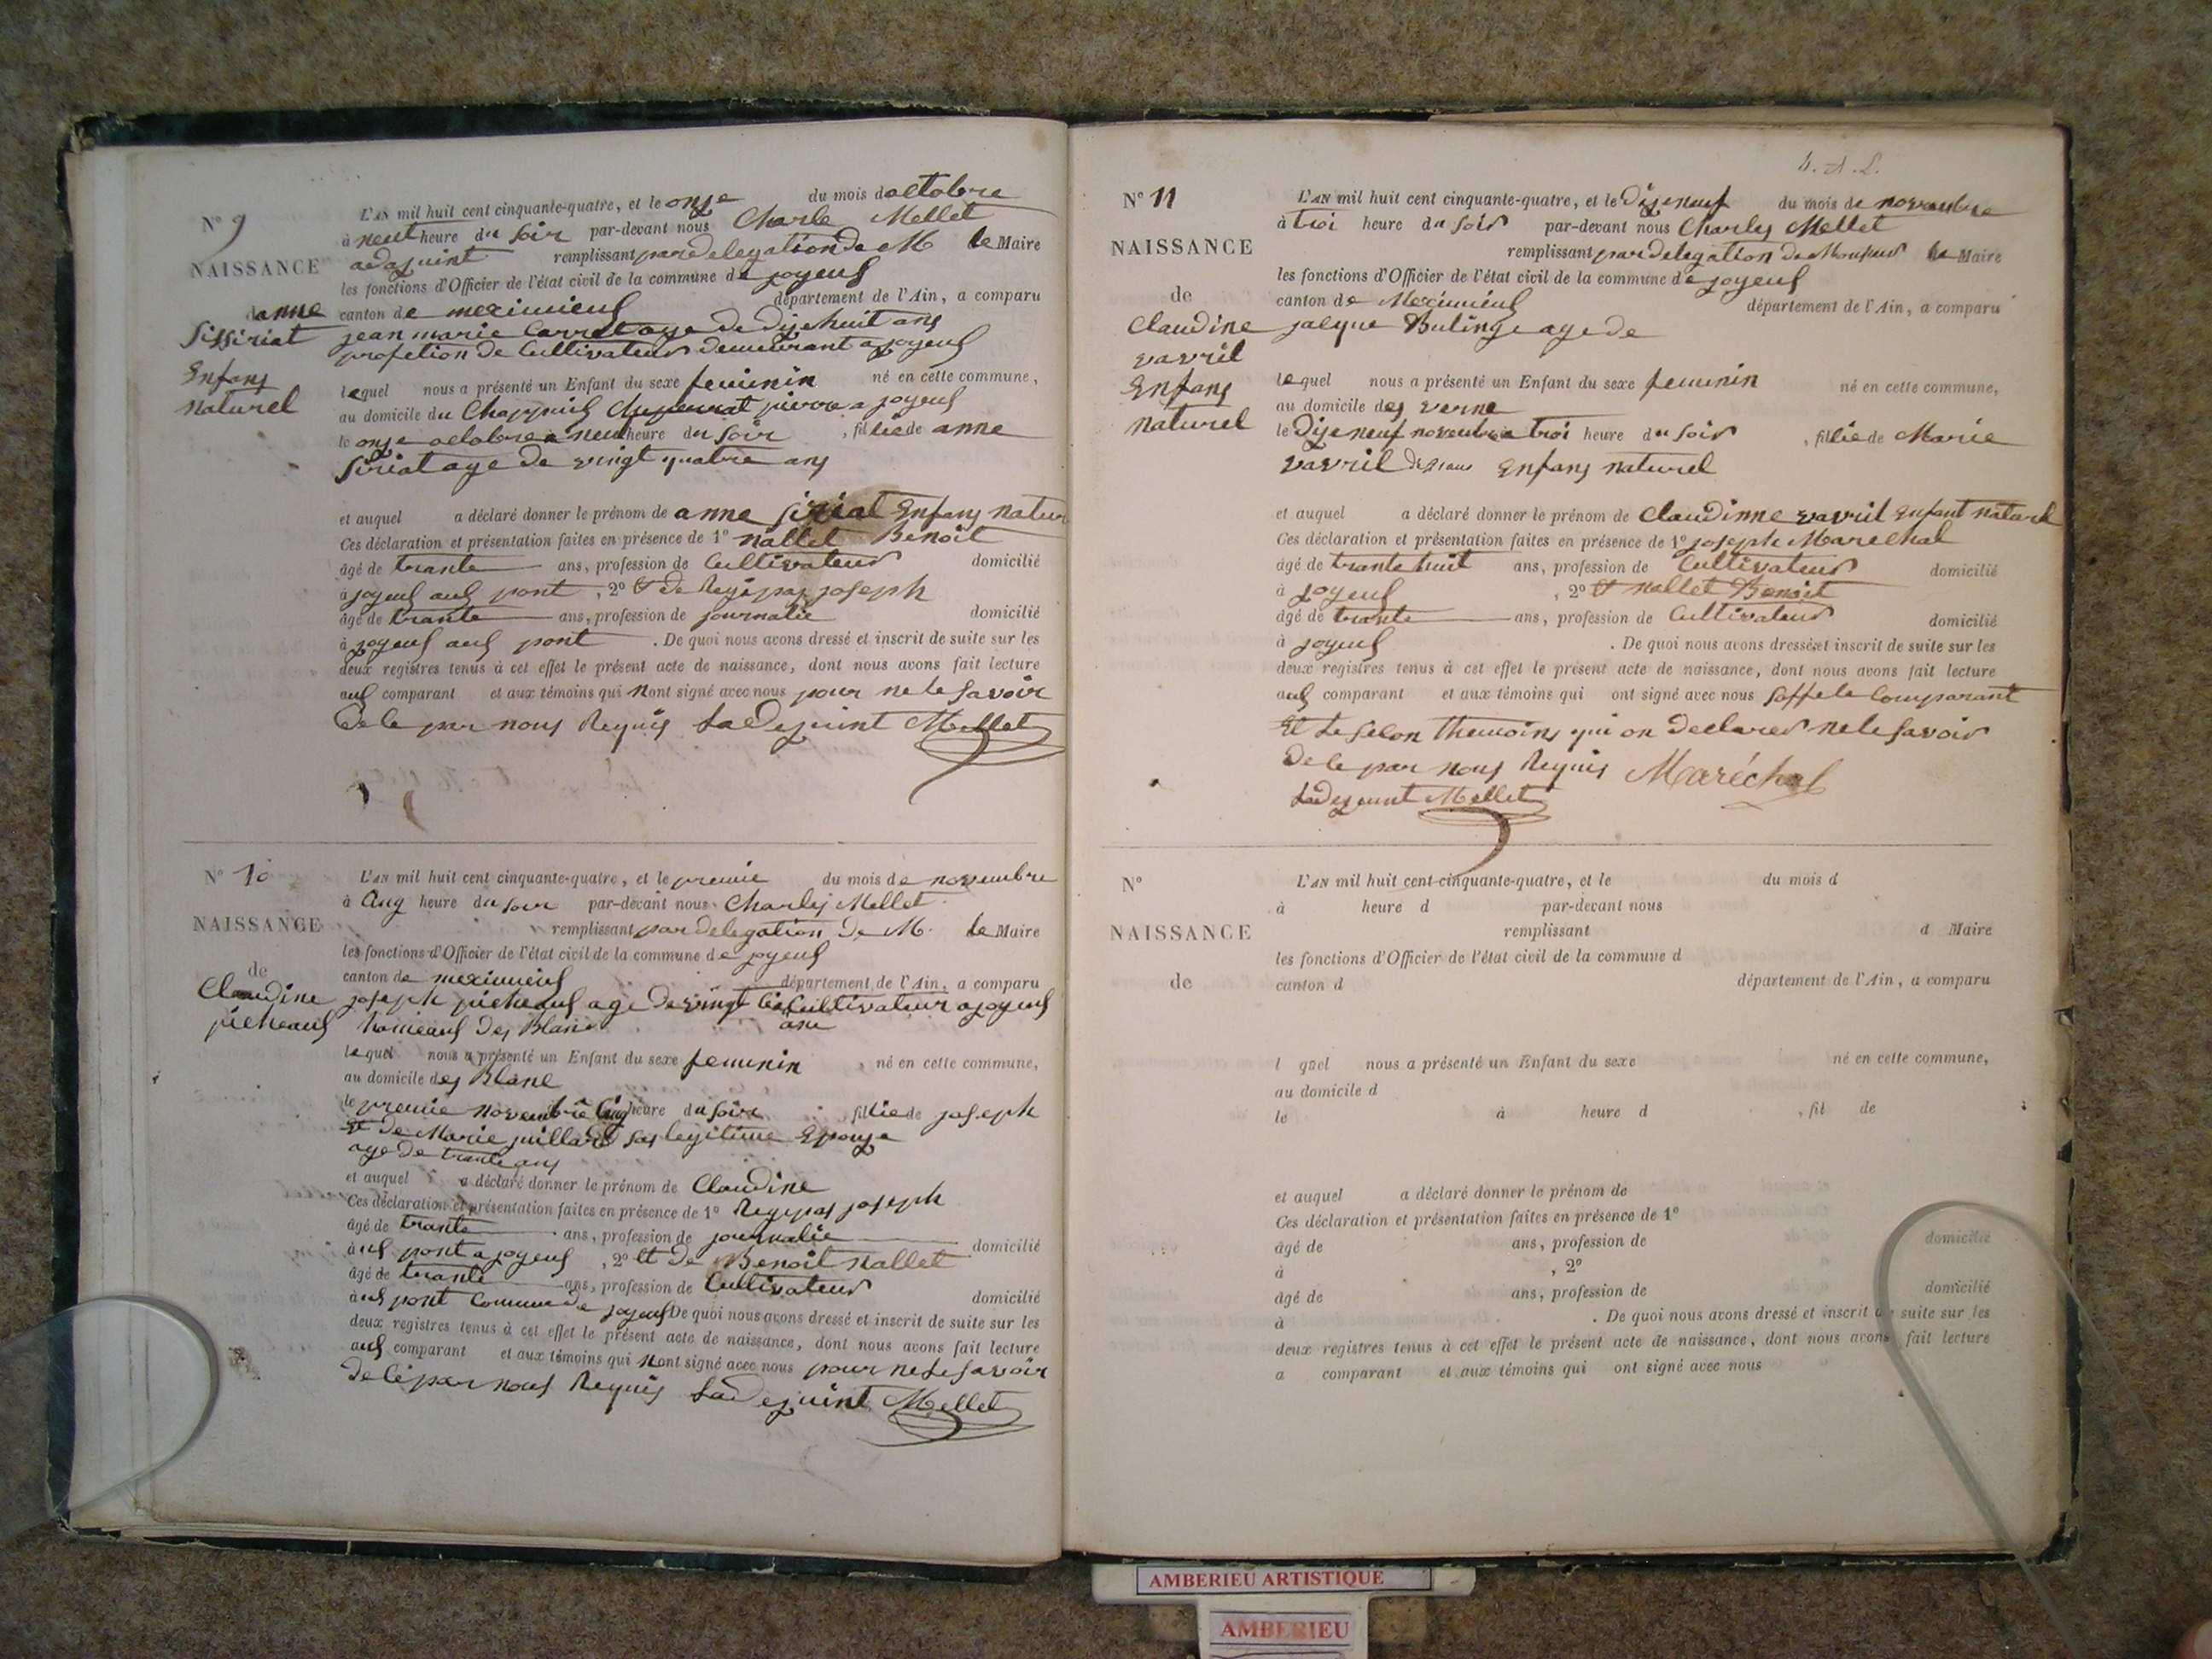 N° 9
NAISSANCE
danne
Sissiriat
Enfans
naturel
L'AN mil huit cent cinquante-quatre, et le onze du mois doctobre
à neuf heure du soir par-devant nous Charle Mellet
adajuint remplissant par delegation de M le Maire
les fonctions d'Officier de l'état civil de la commune de joyeux
canton de meximieux département de l'Ain, a comparu
jean marie Carret age de dije huit ans
profetion de Cultivateur demeurant a joyeux
lequel nous a présenté un Enfant du sexe feminin né en cette commune,
au domicile du pierre a joyeux
le onze octobre a neuf heure du soir , fillie de anne
siriat age de vingt quatre ans
et auquel a déclaré donner le prénom de anne siriat Enfans natur
Ces déclaration et présentation faites en présence de 1° nallet Benoit
âgé de trante ans, profession de Cultivateur domicilié
à joyeux aux pont , 2° et de Regipas joseph
âgé de trante ans, profession de journalie domicilié
à joyeux aux pont . De quoi nous avons dressé et inscrit de suite sur les
deux registres tenus à cet effet le présent acte de naissance, dont nous avons fait lecture
aux comparant et aux témoins qui nont signé avec nous pour ne le savoir
de le par nous Requis Ladejuint Mellet
N° 10
NAISSANCE
de
Claudine
picheaux
L'AN mil huit cent cinquante-quatre, et le premie du mois de novembre
à Cinq heure du soir par-devant nous Charles Mellet
remplissant par delegation de M. le Maire
les fonctions d'Officier de l'état civil de la commune de joyeux
canton de meximieux département de l'Ain, a comparu
joseph picheaux age de vingt Cultivateur a joyeux
hameaux des Blanc
lequel nous a présenté un Enfant du sexe feminin né en cette commune,
au domicile des Blanc
le premie novembre Cinq heure du soir fillie de joseph
Et de Marie juillard sas legitime Epouse
age de trante ans
et auquel a déclaré donner le prénom de Claudine
Ces déclaration et présentation faites en présence de 1° Regipas joseph
âgé de trante ans, profession de journalie domicilié
à aux pont a joyeux , 2° et de Benoit nallet
âgé de trante ans, profession de Cultivateur domicilié
à aux pont Commune de joyeux De quoi nous avons dressé et inscrit de suite sur les
deux registres tenus à cet effet le présent acte de naissance, dont nous avons fait lecture
aux comparant et aux témoins qui nont signé avec nous pour ne le savoir
de le par nous Requis Ladejuint Mellet
N° 11
NAISSANCE
de
Claudine
vavril
Enfans
naturel
L'AN mil huit cent cinquante-quatre, et le Dije neuf du mois de novembre
à troi heure du soir par-devant nous Charles Mellet
remplissant par delegation de Monsieur le Maire
les fonctions d'Officier de l'état civil de la commune de joyeux
canton de Meximieux département de l'Ain, a comparu
jacque Bulinge age de
lequel nous a présenté un Enfant du sexe feminin né en cette commune,
au domicile des verne
le Dije neuf novembre a troi heure du soir , fillie de Marie
vavril Enfans naturel
et auquel a déclaré donner le prénom de Claudinne vavril Enfant naturel
Ces déclaration et présentation faites en présence de 1° joseph Marechal
âgé de trante huit ans, profession de Cultivateur domicilié
à joyeux , 2° et nallet Benoit
âgé de trante ans, profession de Cultivateur domicilié
à joyeux . De quoi nous avons dressé et inscrit de suite sur les
deux registres tenus à cet effet le présent acte de naissance, dont nous avons fait lecture
aux comparant et aux témoins qui ont signé avec nous soffe le Comparant
Et le segon themoins qui on declarer ne le savoir
de le par nous Requis Maréchal
Ladejuint Mellet
N°
NAISSANCE
de
L'AN mil huit cent cinquante-quatre, et le du mois d
à heure d par-devant nous
remplissant d Maire
les fonctions d'Officier de l'état civil de la commune d
canton d département de l'Ain, a comparu
l quel nous a présenté un Enfant du sexe né en cette commune,
au domicile d
le à heure d , fil de
et auquel a déclaré donner le prénom de
Ces déclaration et présentation faites en présence de 1°
âgé de ans, profession de domicilié
à , 2°
âgé de ans, profession de domicilié
à . De quoi nous avons dressé et inscrit de suite sur les
deux registres tenus à cet effet le présent acte de naissance, dont nous avons fait lecture
a comparant et aux témoins qui ont signé avec nous
AMBERIEU ARTISTIQUE
AMBERIEU